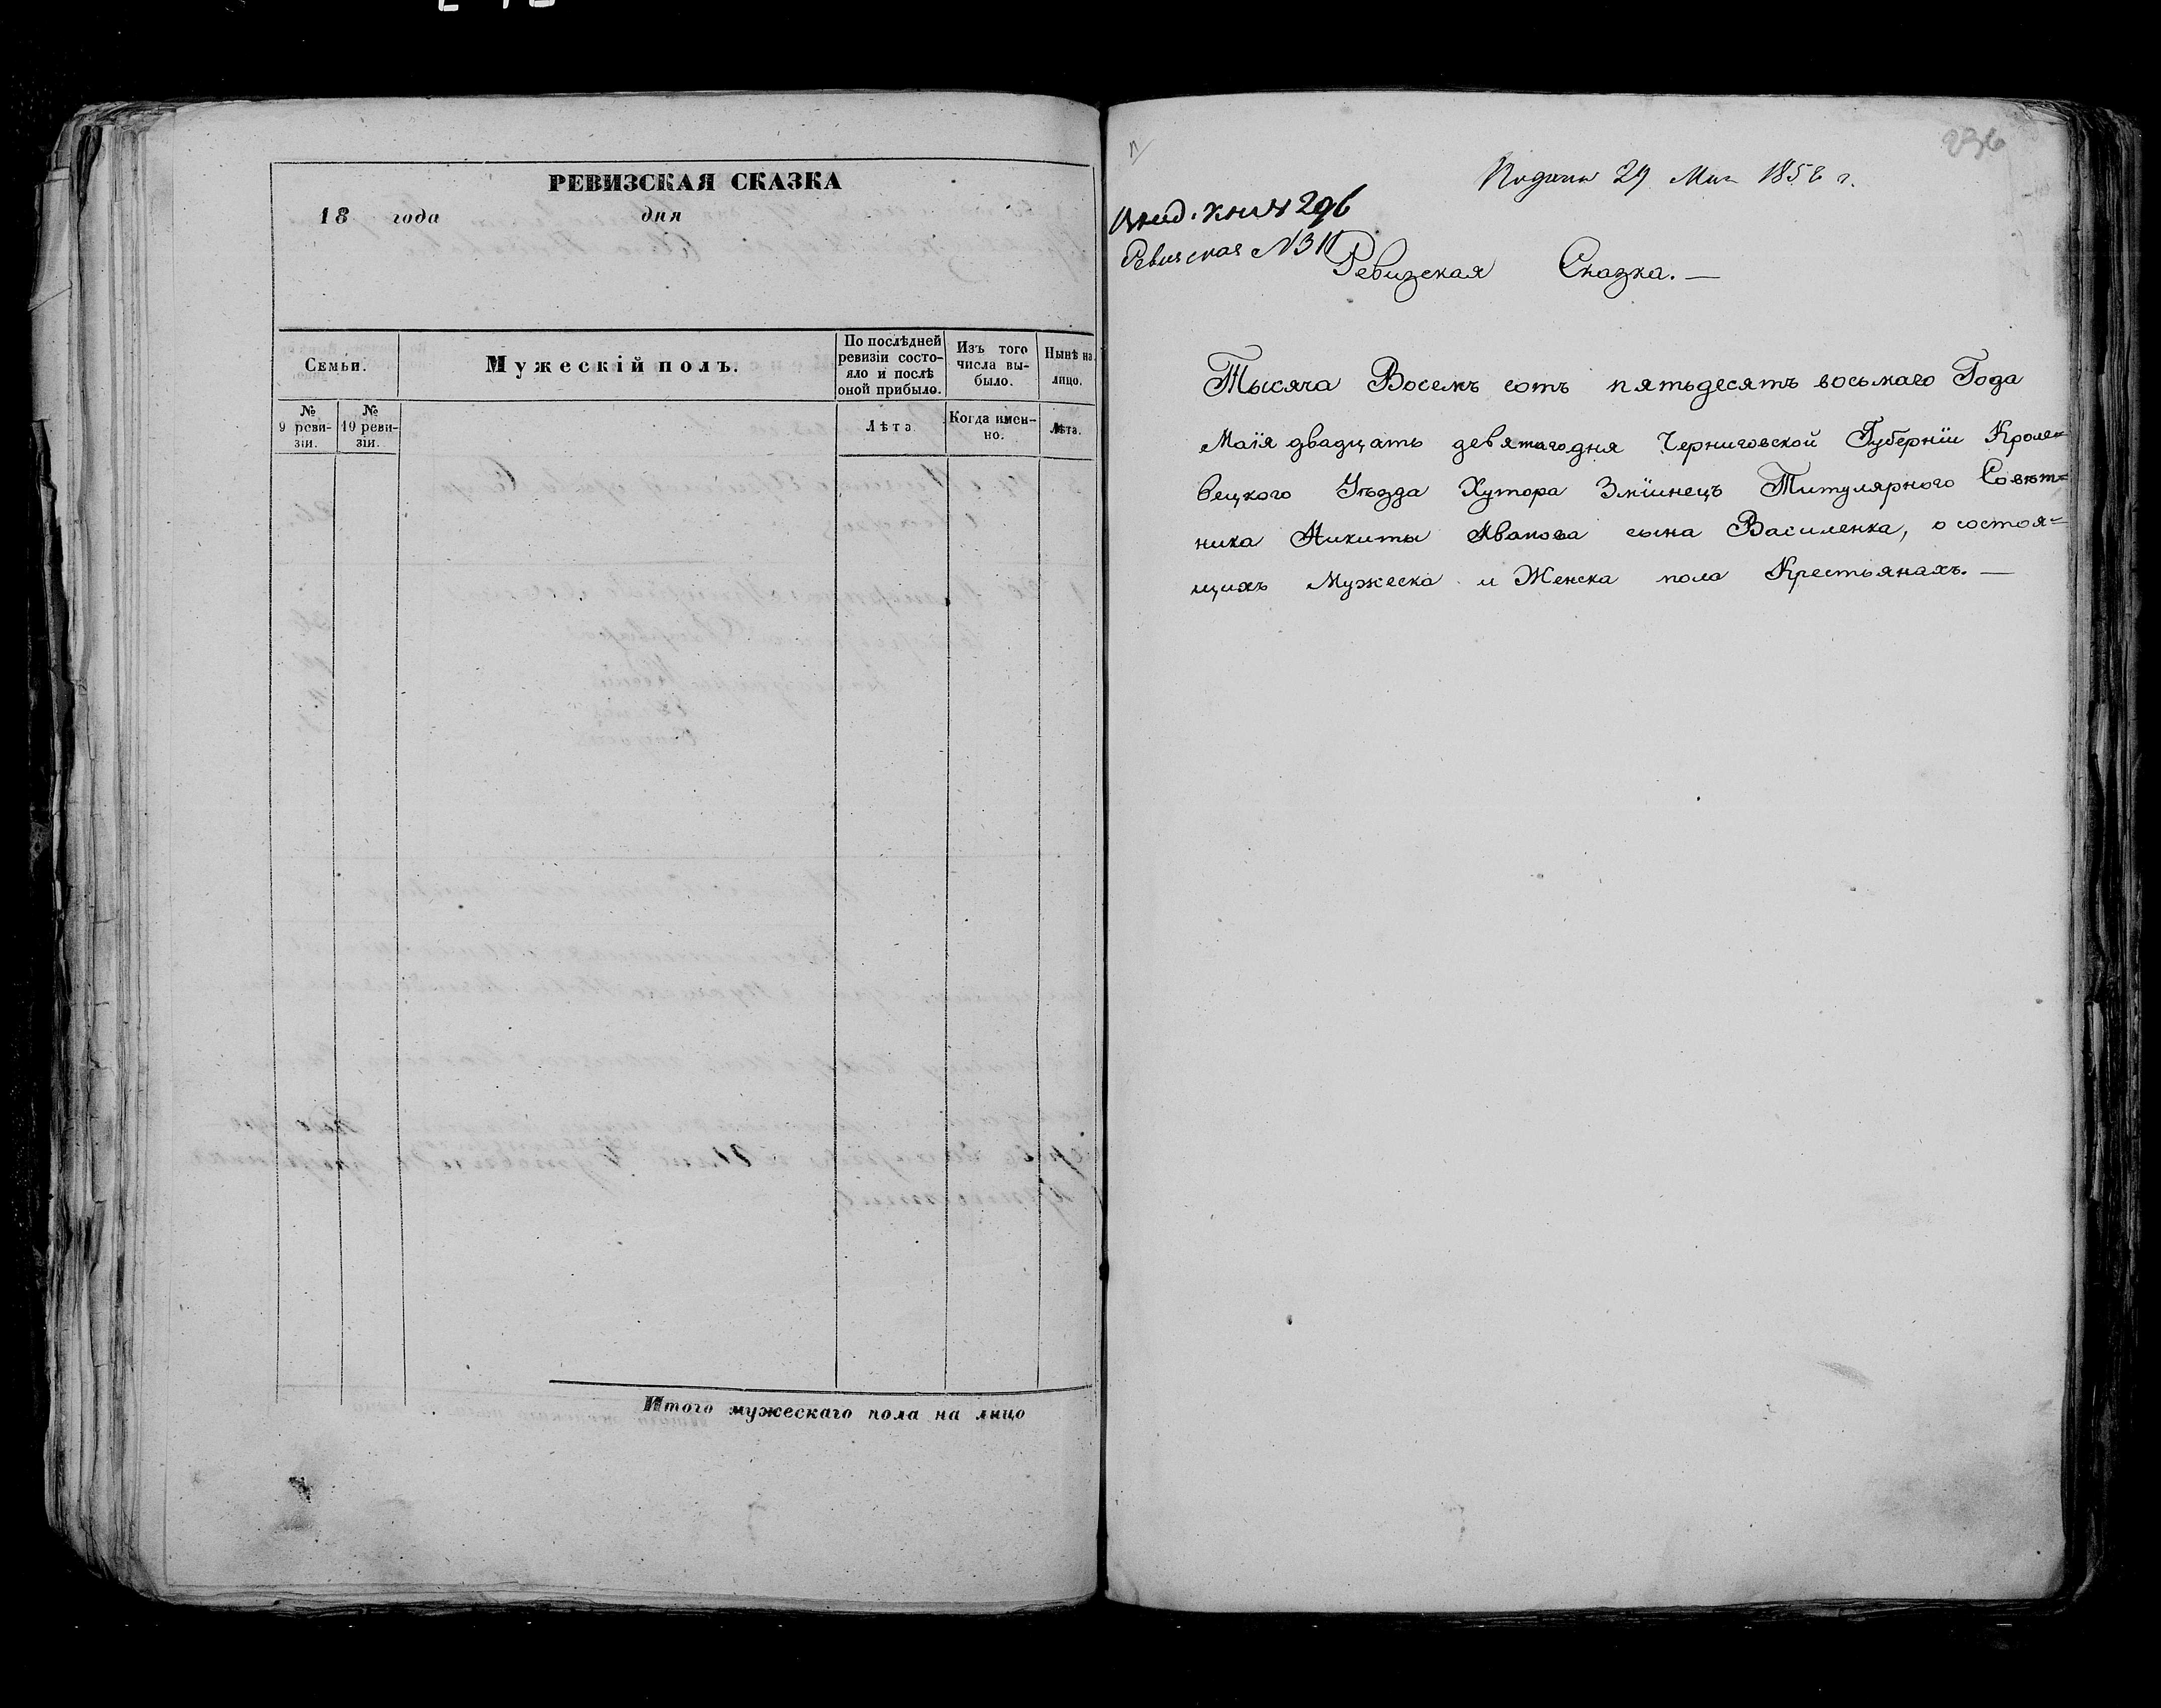 РЕВИЗСКАЯ СКАЗКА
18 года дня
Семьи.
Мужескій полъ.
По послѣдней ревизіи состо-
яло и послѣ
оной прибыло.
Изъ того
числа вы-
было.
Нынѣ на
лицо.
№
9 реви-
зіи.
№
10 реви-
зіи.
Лѣта
Когда имен-
но.
Лѣта.
Итого мужескаго пола на лицо
236
29 1858 г.
296
Ревизская №31
Ревизская Сказка.—
Тысяча Восемъ сотъ пятьдесятъ восьмаго Года
Маія двадцать девятаго дня Черниговской Губерніи Кроле=
вецкого Уѣзда Хутора Зміинецъ Титулярного Совѣт=
ника Никиты Иванова сына Василенка, о состоя=
щихъ Мужеска и Женска пола Крестьянахъ.—